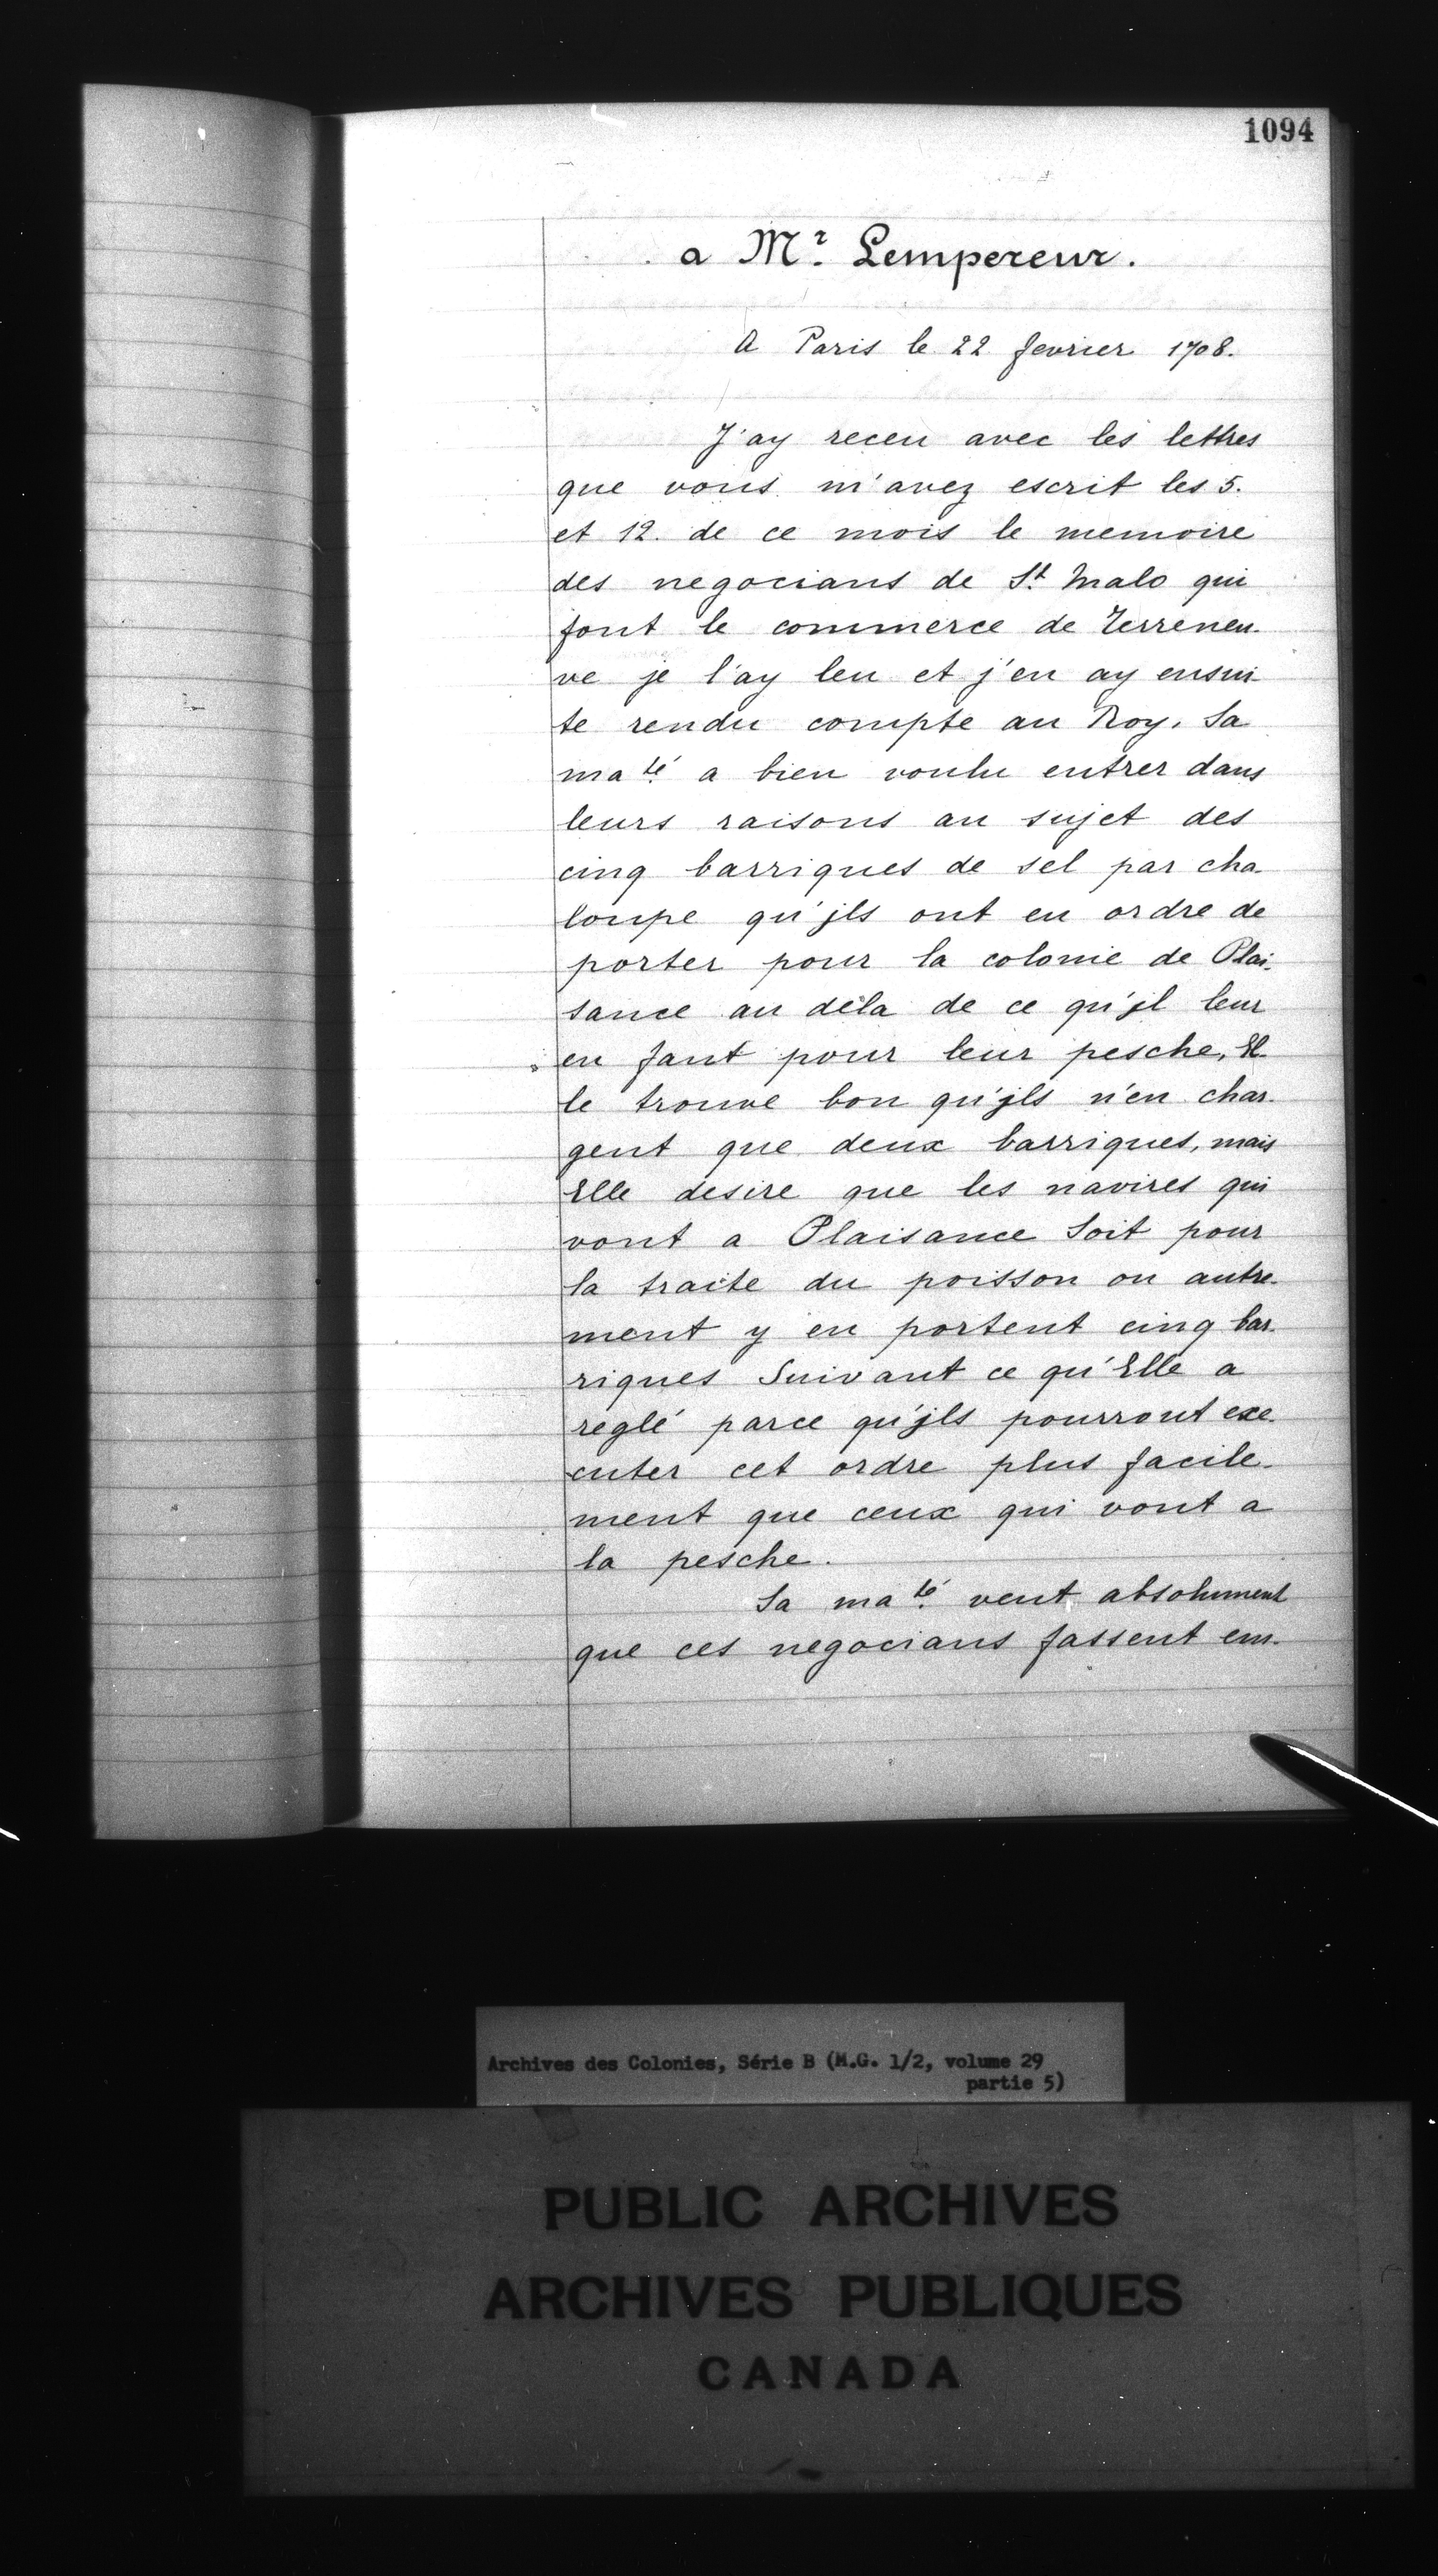 1094
a Mr. Lempereur.
A Paris le 22 fevrier 1708.
J'ay receu avec les lettres
que vous m'avez escrit les 5.
et 12. de ce mois le memoire
des negocians de St. Malo qui
font le commerce de Terreneu-
ve je l'ay leu et j'en ay ensui-
te rendu compte au Roy. Sa
maté. a bien voulu entrer dans
leurs raisons au sujet des
cinq barriques de sel par cha-
loupe qu'jls ont eu ordre de
porter pour la colonie de Plai-
sance au déla de ce qu'jl leur
en faut pour leur pesche, El-
le trouve bon qu'jls n'en char-
gent que deux barriques, mais
Elle desire que les navires qui
vont a Plaisance Soit pour
la traite du poisson ou autre-
ment y en portent cinq bar-
riques Suivant ce qu'Elle a
reglé parce qu'jls pourront exe-
cuter cet ordre plus facile-
ment que ceux qui vont a
la pesche.
Sa maté. veut absolument
que ces negocians fassent em-
Archives des Colonies, Série B (M.G. 1/2, volume 29
partie 5)
PUBLIC ARCHIVES
ARCHIVES PUBLIQUES
CANADA